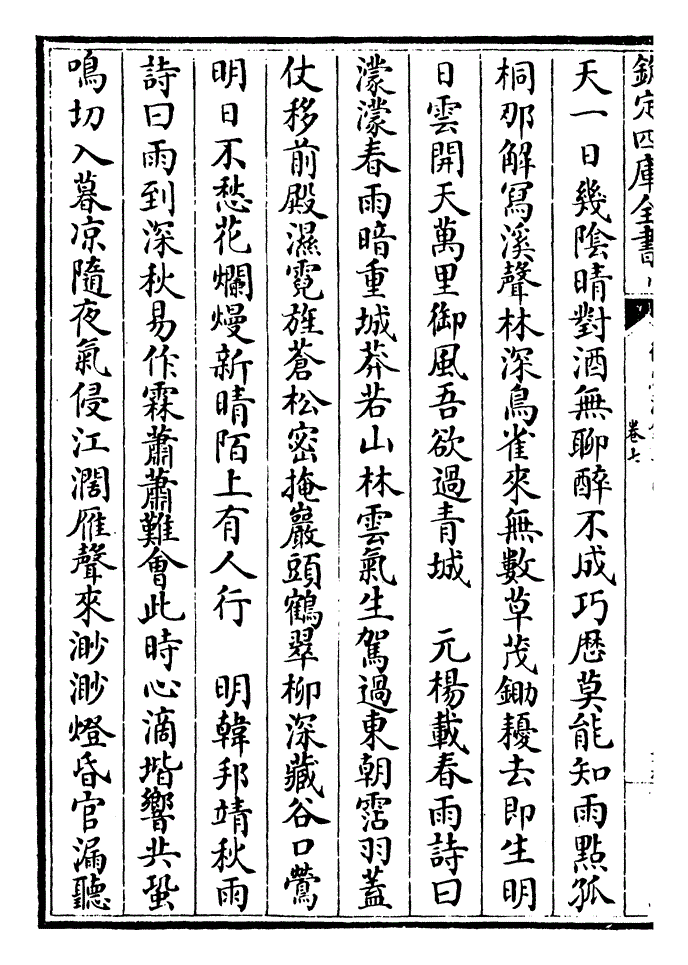 欽定四庫全書
卷七
天一日幾隂晴對酒無聊醉不成巧厯莫能知雨點孤
桐那解冩溪聲林深鳥雀來無數草茂鋤耰去即生明
日雲開天萬里御風吾欲過青城　元楊載春雨詩曰
濛濛春雨暗重城莽若山林雲氣生駕過東朝霑羽蓋
仗移前殿濕霓旌蒼松密掩巖頭鶴翠柳深藏谷口鶯
明日不愁花爛熳新晴陌上有人行　明韓邦靖秋雨
詩曰雨到深秋易作霖蕭蕭難會此時心滴堦響共蛩
鳴切入暮凉隨夜氣侵江濶雁聲來渺渺燈昏官漏聽